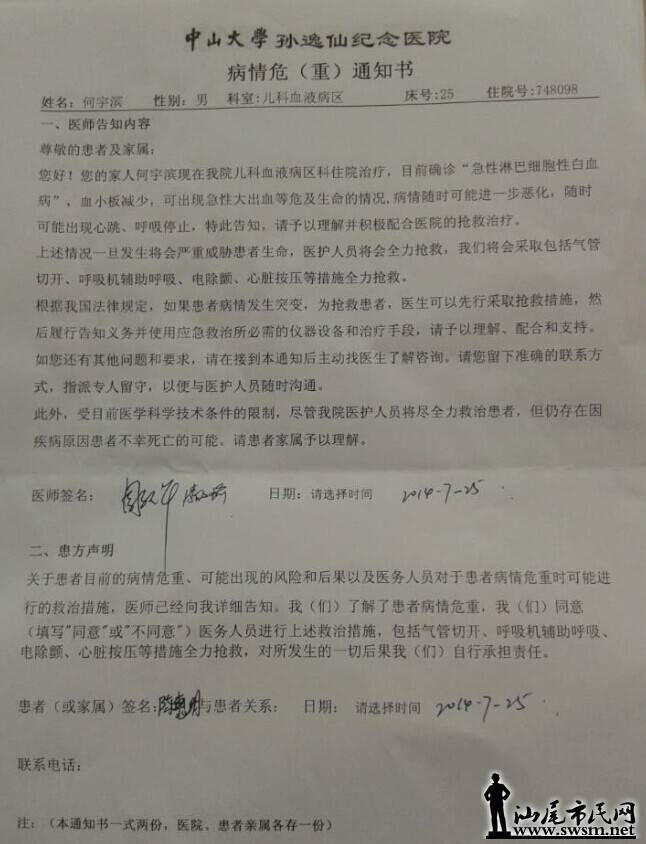 中山大學孙逸仙纪念医院
病情危（重）通知书
姓名: 何宇滨 性别: 男 科室:儿科血液病区 床号:25 住院号:748098
一、医师告知内容
尊敬的患者及家属:
您好！您的家人何宇滨现在我院儿科血液病区科住院治疗，目前确诊“急性淋巴细胞性白血
病”，血小板减少，可出现急性大出血等危及生命的情况,病情随时可能进一步恶化，随时
可能出现心跳、呼吸停止，特此告知，请予以理解并积极配合医院的抢救治疗。
上述情况一旦发生将会严重威胁患者生命，医护人员将会全力抢救，我们将会采取包括气管
切开、呼吸机辅助呼吸、电除颤、心脏按压等措施全力抢救。
根据我国法律规定，如果患者病情发生突变，为抢救患者，医生可以先行采取抢救措施，然
后履行告知义务并使用应急救治所必需的仪器设备和治疗手段，请予以理解、配合和支持。
如您还有其他问题和要求，请在接到本通知后主动找医生了解咨询。请您留下准确的联系方
式，指派专人留守，以便与医护人员随时沟通。
此外，受目前医学科学技术条件的限制，尽管我院医护人员将尽全力救治患者，但仍存在因
疾病原因患者不幸死亡的可能。请患者家属予以理解。
医师签名： 日期：请选择时间 2014-7-25
二、患方声明
关于患者目前的病情危重、可能出现的风险和后果以及医务人员对于患者病情危重时可能进
行的救治措施，医师已经向我详细告知。我（们）了解了患者病情危重，我（们）同意
（填写"同意"或"不同意"）医务人员进行上述救治措施，包括气管切开、呼吸机辅助呼吸、
电除颤、心脏按压等措施全力抢救，对所发生的一切后果我（们）自行承担责任。
患者（或家属）签名: 与患者关系： 日期： 请选择时间 2014-7-25
联系电话：
注：（本通知书一式两份，医院、患者亲属各存一份）
汕尾市民网
www.swsm.net